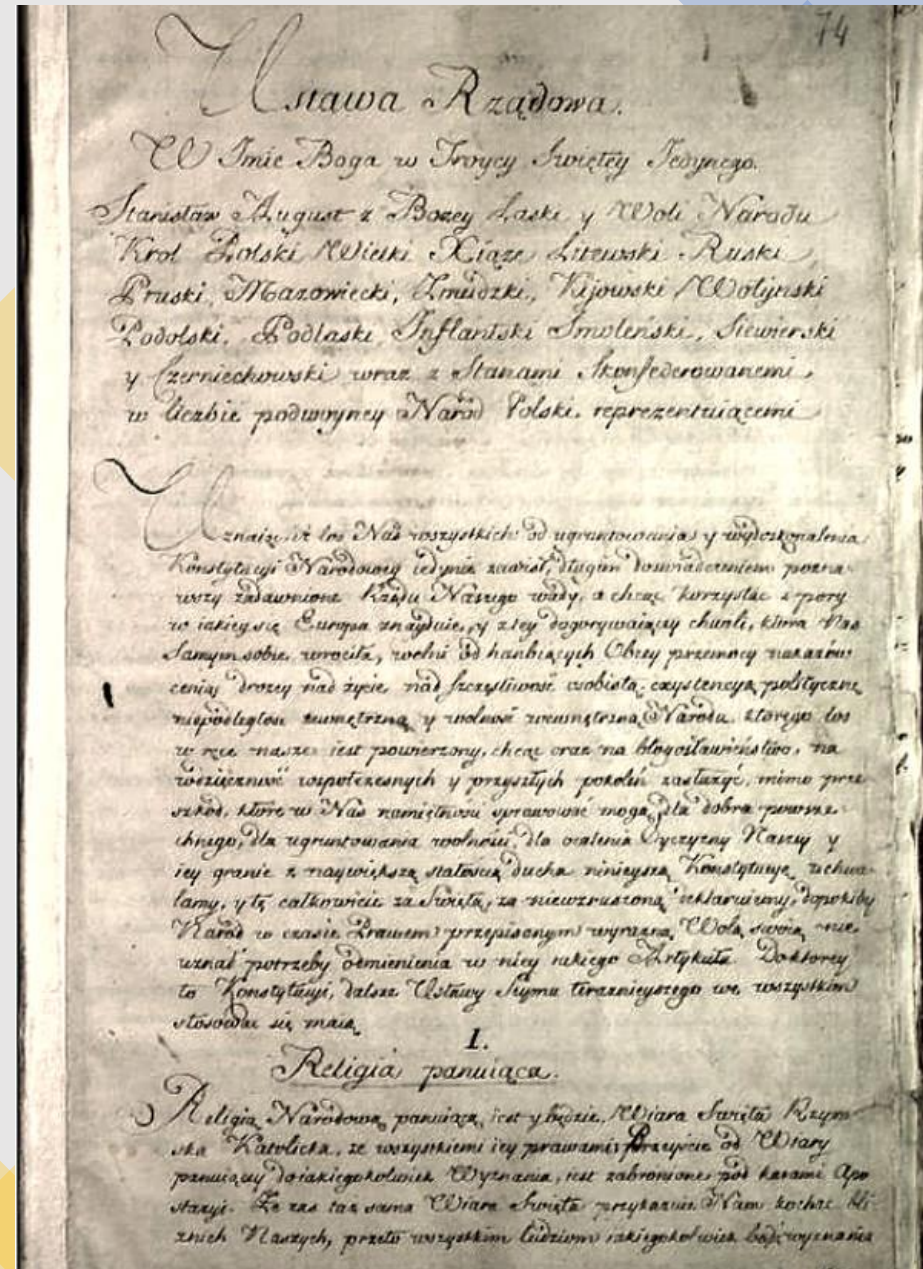 74
Ustawa Rządowa.
W Imie Boga w Troycy Swiętey Jedynego.
Stanisław August z Bożey Łaski y Woli Narodu
Krol Polski Wielki Xiąże Litewski Ruski
Pruski, Mazowiecki, Zmudzki, Kijowski Wołyński
Podolski, Podlaski, Inflantski Smoleński, Siewierski
y Czerniechowski wraz z Stanami skonfederowanemi,
w liczbie podwoyney Narod Polski reprezentuiącemi
Uznaiąc iż los Nas wszystkich od ugruntowania y wydoskonalenia
Konstytucyi Narodowey iedynie zawisł, długim doswiadczeniem pozna-
wszy zadawnione Rządu Naszego wady, a chcąc korzystac z pory
w iakiey się Europa znayduie, y z tey dogorywaiącey chwili, ktora Nas
samym sobie wrociła, wolni od hanbiących Obcey przemocy nakazow
ceniąc drozey nad życie, nad szczęsliwosć osobistą, exystencyą polityczną
niepodległosc zewnętrzną y wolność wewnętrzną Narodu, ktorego los
w ręce nasze iest powierzony, chcąc oraz na błogosławienstwo, na
wdzięczność wspołczesnych y przyszłych pokoleń zasłużyć, mimo prze-
szkod, ktore w Nas namiętnosci sprawować mogą, dla dobra powsze-
chnego, dla ugruntowania wolności, dla ocalenia Oyczyzny Naszey y
iey granic z naywiększą stałoscią ducha ninieyszą Konstytucyę uchwa-
lamy, y tę całkowicie za Swiętą, za niewzruszoną deklaruiemy, dopokiby
Narod w czasie Prawem przepisanym wyrazną Wolą swoią nie
uznał potrzeby odmienienia w niey iakiego Artykułu. Do ktorey
to Konstytucyi, dalsze Ustawy Seymu teraznieyszego we wszystkim
stosować się maią
I.
Religia panuiąca.
Religią Narodową panuiącą, iest y będzie Wiara Swięta Rzym-
ska Katolicka, ze wszystkiemi iey prawami, Przeyście od Wiary
panuiącey do iakiegokolwiek Wyznania, iest zabronione pod karami Apo-
stazyi. Że zas taż sama Wiara Swięta przykazuie Nam kochać bli-
znich Naszych, przeto wszystkim ludziom iakiegokolwiek bądź wyznania